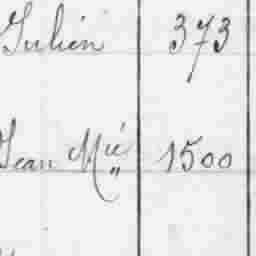 Julien 373
Jean Mie 1500